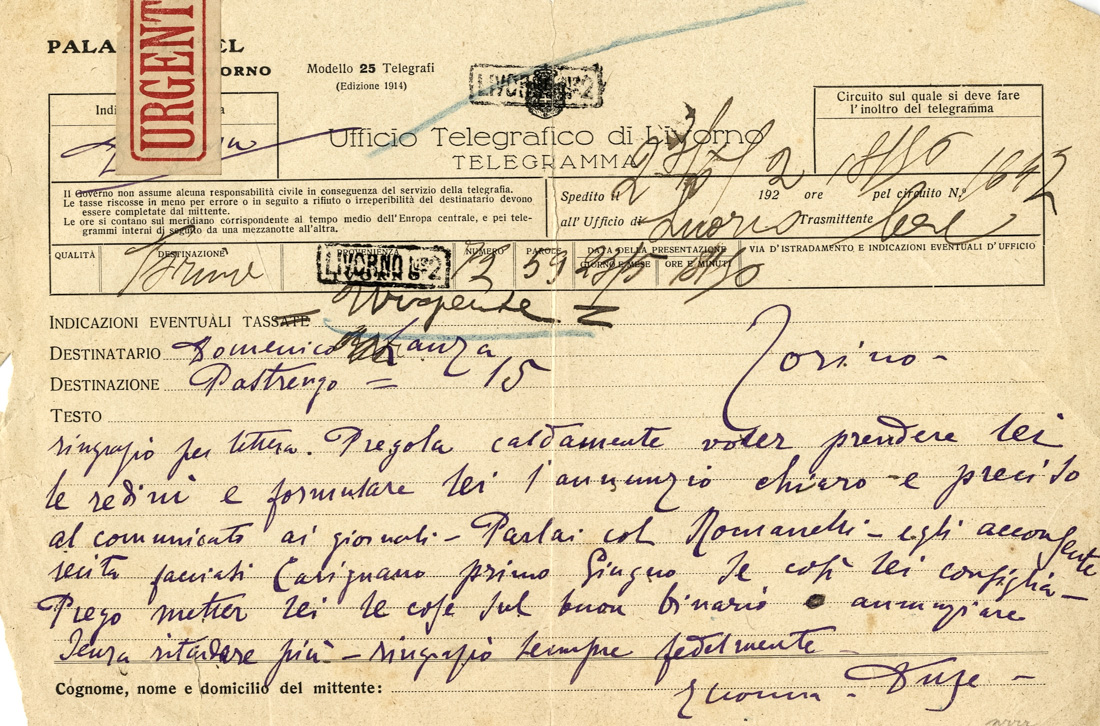 URGENT
PALA EL
ORNO
Modello 25 Telegrafi
(Edizione 1914)
LIVORNO N.2
Circuito sul quale si deve fare
l'inoltro del telegramma
Indi
Ufficio Telegrafico di Livorno
TELEGRAMMA
Il Governo non assume alcuna responsabilità civile in conseguenza del servizio della telegrafia.
Le tasse riscosse in meno per errore o in seguito a rifiuto o irreperibilità del destinatario devono
essere completate dal mittente.
Le ore si contano sul meridiano corrispondente al tempo medio dell'Europa centrale, e pei tele-
grammi interni di seguito da una mezzanotte all'altra.
Spedito il 192 2 ore pel circuito N.° 1642
all'Ufficio di Trasmittente
QUALITÀ DESTINAZIONE PROVENIENZA NUMERO PAROLE DATA DELLA PRESENTAZIONE VIA D'ISTRADAMENTO E INDICAZIONI EVENTUALI D'UFFICIO
GIORNO E MESE ORE E MINUTI
Torino LIVORNO N.2 59
INDICAZIONI EVENTUALI TASSATE = Urgente =
DESTINATARIO Domenico Lanza
DESTINAZIONE Pastrengo = 15 Torino -
TESTO
ringrazio per lettera. Pregola caldamente voler prendere lei
le redini e formulare lei l'annunzio chiaro e preciso
al comunicato ai giornali - Parlai col Romanelli - egli acconsente
recita facciasi Carignano primo Giugno se così lei consiglia -
Prego metter lei le cose sul buon binario annunziare
senza ritardare più - ringrazio sempre fedelmente
Cognome, nome e domicilio del mittente: Eleonora - Duse -